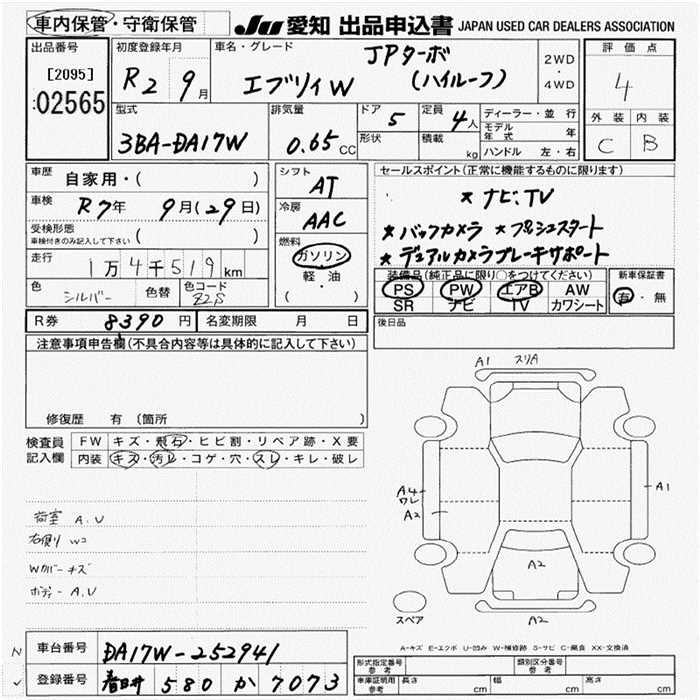 車内保管・守衛保管
JU 愛知 出品申込書 JAPAN USED CAR DEALERS ASSOCIATION
出品番号
[2095]
02565
初度登録年月
R2 9月
車名・グレード
JPターボ
エブリイW (ハイルーフ)
2WD
・
4WD
評価点
4
外装 内装
C B
型式
3BA-DA17W
排気量
0.65 CC
ドア 5
形状
定員 4人
積載 kg
ディーラー・並行
モデル年式 年
ハンドル 左・右
車歴 自家用・( )
車検 R7年 9月(29日)
受検形態
車検付きのみ記入して下さい ( )
走行 1万4千519km
色 シルバー 色替 色コード Z2S
シフト AT
冷房 AAC
燃料
ガソリン
軽・油
( )
セールスポイント(正常に機能するものに限ります)
* ナビ、TV
* バックカメラ * プッシュスタート
* デュアルカメラブレーキサポート
装備品(純正品に限り○をつけてください) 新車保証書
PS PW エアB AW 有・無
SR ナビ TV カワシート
R券 8390円 名変期限 月 日
後日品
注意事項申告欄(不具合内容等は具体的に記入して下さい)
修復歴 有 (箇所 )
検査員記入欄
FW キズ・飛石・ヒビ割・リペア跡・X要
内装 キズ・汚レ・コゲ・穴・スレ・キレ・破レ
荷室 A.U
右側り Wコ
Wカバーキズ
ボデー A.U
A1 スリA
A4
ワレ
A2
A1
A2
A2
スペア
A-キズ E-エクボ U-凹み W-補修跡 S-サビ C-腐食 XX-交換済
N
車台番号 DA17W-252941
登録番号 春日井 580 か 7073
型式指定番号
参考
類別区分番号
参考
車庫証明用
参考
長さ cm 幅 cm 高さ cm